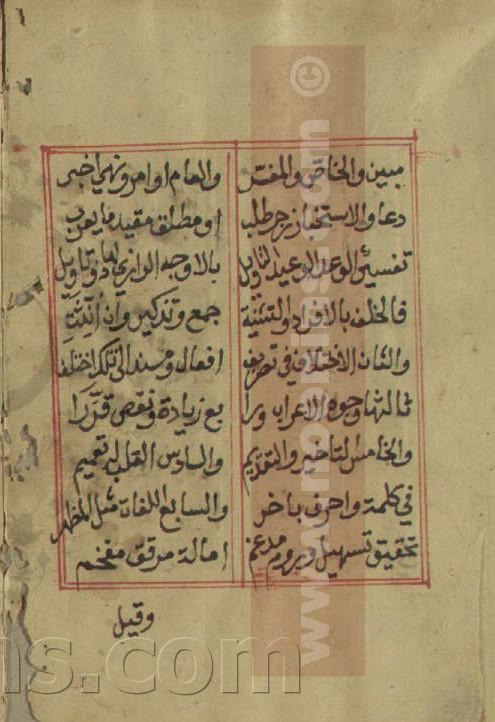 مبين والخاص والمفسر والعام او امر ونهي اخبر
دعا والاستخبار زجر طلب او مطلق مقيد ما يعرب
تفسيرٌ الوعد الوعيد بالاوجه الرازي
فالخلف بالافراد والتثنية جمع وتذكير وان أنثت
والثان الاختلاف في تصريف افعال ومسند الى تلك اختلفا
ثالثها وجوه الاعراب ورا بع زيادة ونقص قررا
والخامس لتاخير والتقديم والسادس القلب
في كلمة واحرف بآخر والسابع اللغات مثل المظهر
تحقيق تسهيل وروم مدغم امالة مرقق مفخم
وقيل
www.moslims.com ©
ns.com